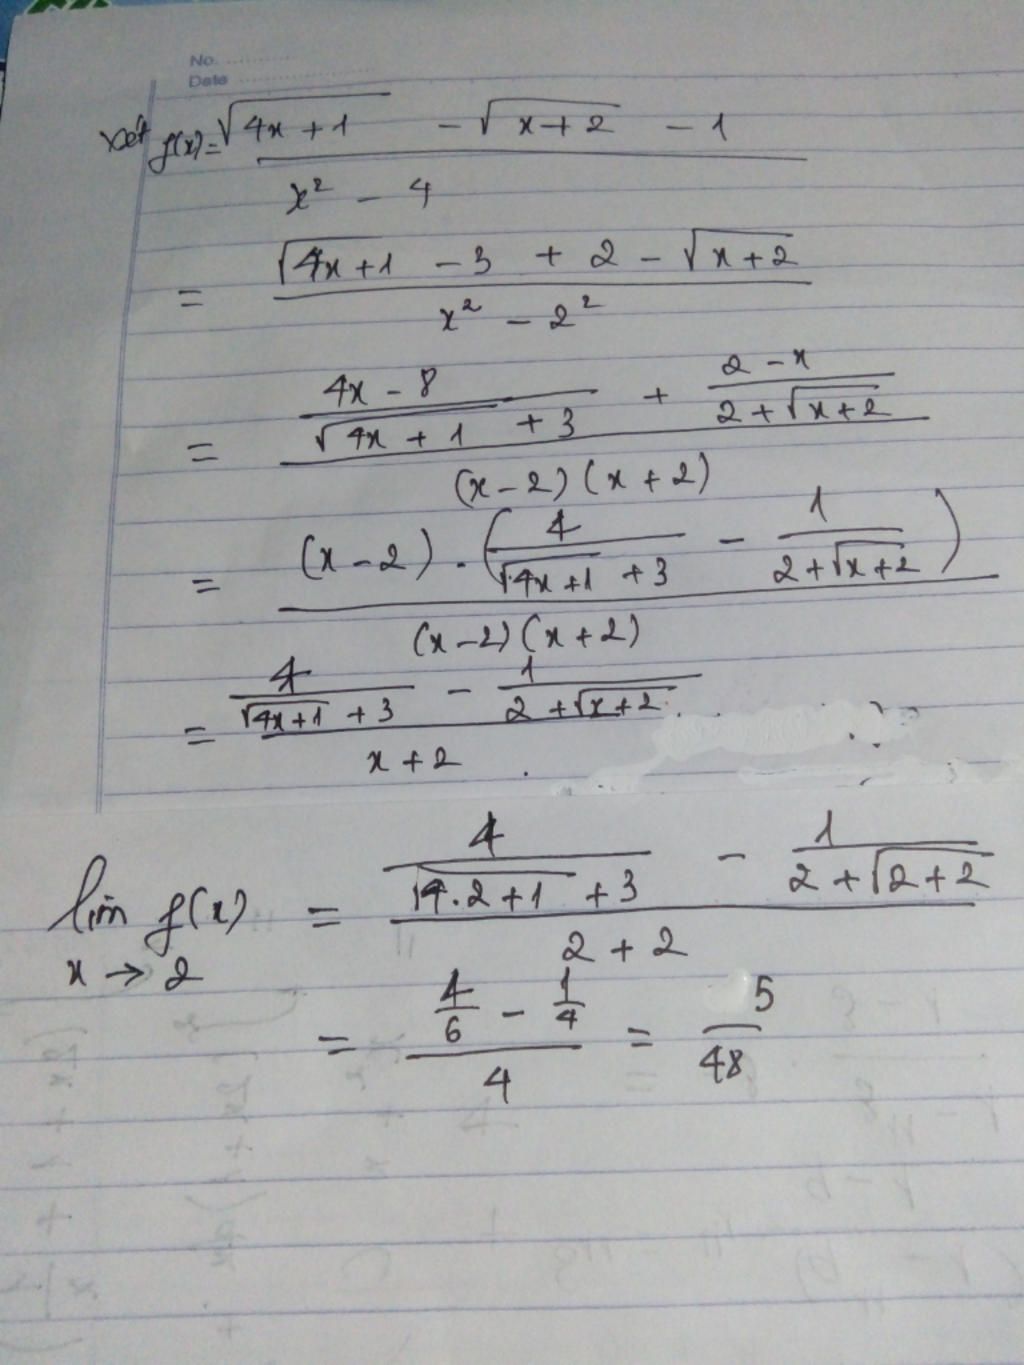 No. ............
Date ........................
Xét f(x) = \frac{\sqrt{4x+1} - \sqrt{x+2} - 1}{x^2 - 4}
= \frac{\sqrt{4x+1} - 3 + 2 - \sqrt{x+2}}{x^2 - 2^2}
= \frac{\frac{4x-8}{\sqrt{4x+1} + 3} + \frac{2-x}{2+\sqrt{x+2}}}{(x-2)(x+2)}
= \frac{(x-2) . (\frac{4}{\sqrt{4x+1} + 3} - \frac{1}{2+\sqrt{x+2}})}{(x-2)(x+2)}
= \frac{\frac{4}{\sqrt{4x+1} + 3} - \frac{1}{2+\sqrt{x+2}}}{x+2}
\lim_{x \to 2} f(x) = \frac{\frac{4}{\sqrt{4.2+1} + 3} - \frac{1}{2+\sqrt{2+2}}}{2+2}
= \frac{\frac{4}{6} - \frac{1}{4}}{4} = \frac{5}{48}